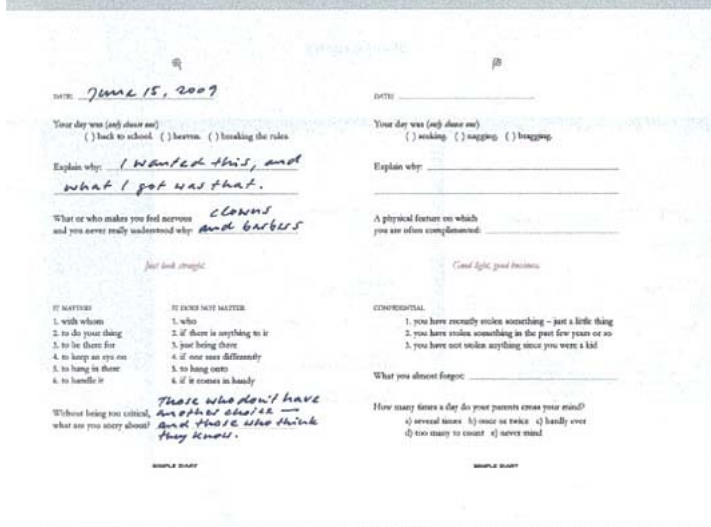 DATE: June 15, 2009
Your day was (only choose one)
( ) back to school. ( ) heaven. ( ) breaking the rules.
Explain why: I wanted this, and
what I got was that.
What or who makes you feel nervous clowns
and you never really understood why: and barbers
Just look straight.
IT MATTERS
1. with whom
2. to do your thing
3. to be there for
4. to keep an eye on
5. to hang in there
6. to handle it
IT DOES NOT MATTER
1. who
2. if there is anything to it
3. just being there
4. if one sees differently
5. to hang onto
6. if it comes in handy
Those who don't have
Without being too critical, another choice —
what are you sorry about? and those who think
they know.
SIMPLE DIARY
DATE:
Your day was (only choose one)
( ) seeking. ( ) nagging. ( ) bragging.
Explain why:
A physical feature on which
you are often complimented:
Good light, good business.
CONFIDENTIAL
1. you have recently stolen something – just a little thing
2. you have stolen something in the past few years or so
3. you have not stolen anything since you were a kid
What you almost forgot:
How many times a day do your parents cross your mind?
a) several times b) once or twice c) hardly ever
d) too many to count e) never mind
SIMPLE DIARY